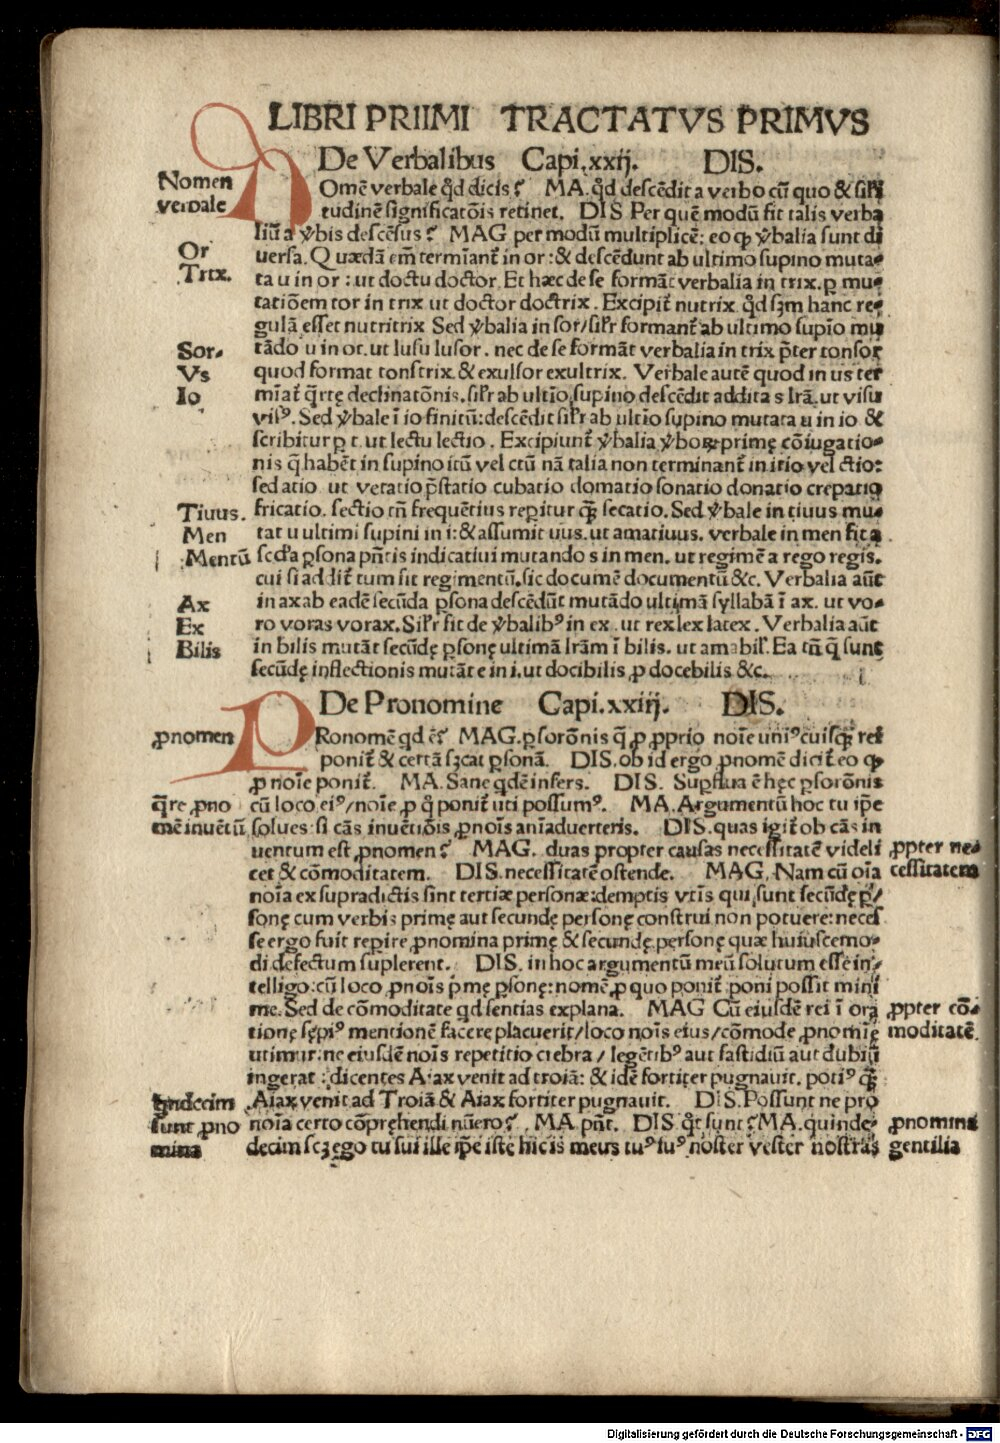 LIBRI PRIIMI TRACTATVS PRIMVS
De Verbalibus Capi.xxij. DIS.
Nomen
verbale
NOmē verbale qd dicis? MA. qd descēdit a verbo cū quo & sili
tudinē significatōis retinet. DIS Per quē modū fit talis verba
liū a ṽbis descēsus? MAG per modū multiplicē: eo ꝙ ṽbalia sunt di
Or
Trix.
uersa. Quædā em̄ termīant̄ in or: & descēdunt ab ultimo supino muta-
ta u in or: ut doctu doctor. Et hæc de se formāt verbalia in trix. ꝑ mu-
tatiōem tor in trix ut doctor doctrix. Excipit̄ nutrix qd sꝫm hanc re-
gulā esset nutritrix Sed ṽbalia in sor/silr formant̄ ab ultimo supīo mu
Sor.
Vs
Io
tādo u in or. ut lusu lusor. nec de se formāt verbalia in trix p̄ter tonsor
quod format tonstrix. & exulsor exultrix. Verbale autē quod in us ter
mīat̄ q̄rtę declinatōnis. silr ab ultīo supino descēdit addita s lrā. ut visu
visꝰ. Sed ṽbale ī io finitū: descēdit silr ab ultīo supino mutata u in io &
scribitur ꝑ t. ut lectu lectio. Excipiunt̄ ṽbalia ṽboꝝ primę cōiugatio-
nis q̄ habēt in supino itū vel ctū nā talia non terminant̄ in itio vel ctio:
sed atio ut vetatio p̄statio cubatio domatio sonatio donatio crepatio
Tiuus.
Men
Mentū
fricatio. sectio tn̄ frequētius reperitur qꝫ̄ secatio. Sed ṽbale in tiuus mu-
tat u ultimi supini in i: & assumit uus. ut amatiuus. verbale in men fit a
scd'a ꝑsona pn̄tis indicatiui mutando s in men. ut regimē a rego regis.
cui si addit̄ tum fit regimentū. sic documē documentū &c. Verbalia aūt
Ax
Ex
Bilis
in ax ab eadē secūda ꝑsona descēdūt mutādo ultimā syllabā ī ax. ut vo-
ro voras vorax. Silr fit de ṽbalibꝰ in ex. ut rex lex latex. Verbalia aūt
in bilis mutāt secūdę ꝑsonę ultimā lrām ī bilis. ut amabil'. Ea tn̄ q̄ sunt
secūdę inflectionis mutāt e in i. ut docibilis ꝓ docebilis &c.
De Pronomine Capi.xxiij. DIS.
ꝓnomen
PRonomē qd ē? MAG. ꝑs oronīs q̄ ꝓ ꝓprio noīe uniꝰcuiusqꝫ rei
ponit̄ & certā sꝫcat ꝑsonā. DIS. ob id ergo ꝓnomē dicit̄ eo ꝙ
ꝓ noīe ponit̄. MA. Sane qdē infers. DIS. Supflua ē hęc ꝑs orōnis
q̄re ꝓno
mē inuētū
cū loco eiꝰ/noīe ꝓ q̄ ponit̄ uti possumꝰ. MA. Argumentū hoc tu ip̄e
solues: si cās inuētiōis ꝓnoīs anīaduerteris. DIS. quas igit̄ ob cās in
uentum est ꝓnomen? MAG. duas propter causas necessitatē videli
ꝓpter ne
cessitatem
cet & cōmoditatem. DIS. necessitatē ostende. MAG. Nam cū oīa
noīa ex supradictis sint tertiæ personæ: demptis vtīs qui sunt secūdę ꝑ/
sonę cum verbis primę aut secundę personę construi non potuere: neces
se ergo fuit reꝑire ꝓnomina primę & secundę personę quæ huiuscemo-
di defectum suplerent. DIS. in hoc argumentū meū solutum esse in/
telligo: cū loco ꝓnoīs p̄mę ꝑsonę: nomē ꝓ quo ponit̄ poni possit mini
me. Sed de cōmoditate qd sentias explana. MAG Cū eiusdē rei ī ora
ꝓpter cō-
moditatē.
tionę sępiꝰ mentionē facere placuerit/loco noīs eius/cōmode ꝓnomīe
utimur: ne eiusdē noīs repetitio crebra/ legētibꝰ aut fastidiū aut dubiū
ingerat: dicentes Aiax venit ad troiā: & idē fortiter pugnauit. potiꝰ qꝫ̄
Aiax venit ad Troiā & Aiax fortiter pugnauit. DIS. Possunt ne pro
Qndecim
sunt ꝓno
mina
noīa certo cōprehendi nūero? MA. pn̄t. DIS. qt̄ sunt? MA. quinde-
decim scꝫ ego tu sui ille ip̄e iste hic is meus tuꝰ suꝰ noster vester nostras
ꝓnomina
gentilia
Digitalisierung gefördert durch die Deutsche Forschungsgemeinschaft - DFG